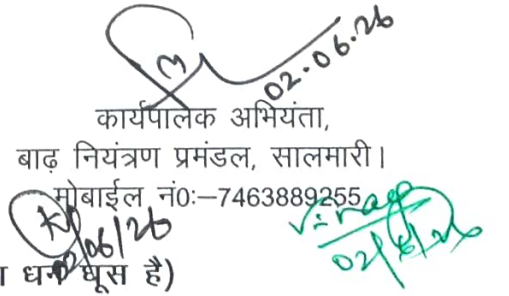 02.06.26
कार्यपालक अभियंता,
बाढ़ नियंत्रण प्रमंडल, सालमारी।
मोबाईल नं0:–7463889255
02/06/26
02/6/26
धन घूस है)